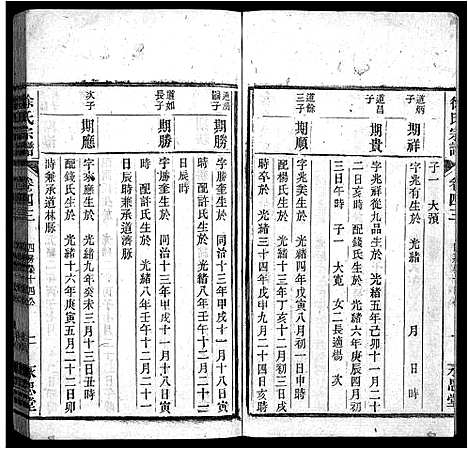 徐氏宗譜
卷四三
子一 大預
道炳
子
期祥
字兆有生於 光緒 月 日 時
道昌
子
期貴
字兆祥從九品生於 光緒五年己卯十一月二十
二日亥時 配錢氏生於 光緒六年庚辰四月初
三日午時 子一 大寬 女二長適楊 次
道餘
子
期順
字兆美生於 光緒四年戊寅八月初三日寅時
配楊氏生於 光緒十三年丁亥十月十三日辰
時卒於 光緒三十四年戊申九月二十四日亥時
期勝
字勝奎生於 同治十三年甲戌十一月十八日寅
時 配許氏生於 光緒八年壬午十二月二十一
日辰時
道如
長子
期勝
字勝奎生於 同治十三年甲戌十一月十八日寅
時 配許氏生於 光緒八年壬午十二月二十一
日辰時兼承道濟脈
次子
期應
字 應生於 光緒九年癸未三月十三日丑時
配錢氏生於 光緒十六年庚寅五月二十三日卯
時兼承道林脈
徐氏宗譜
卷四三
永思堂